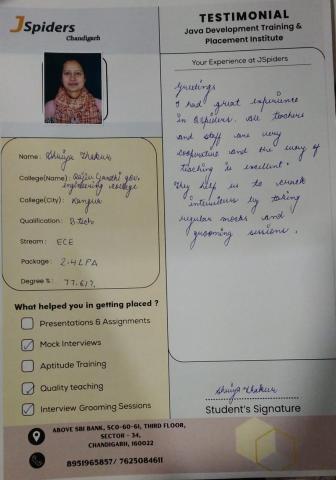 JSpiders
Chandigarh
TESTIMONIAL
Java Development Training &
Placement Institute
Your Experience at JSpiders
Greetings
I had great experience
in Qspiders. All teachers
and staff are very
cooperative and the way of
teaching is excellent.
They help us to crack
interviews by taking
regular mocks and
grooming sessions.
Name: Shriya Thakur
College(Name): Rajiv Gandhi gov.
engineering college
College(City): Kangra
Qualification: B.tech
Stream: ECE
Package: 2.4LPA
Degree %: 77.61%
What helped you in getting placed ?
Presentations & Assignments
Mock Interviews
Aptitude Training
Quality teaching
Interview Grooming Sessions
Shriya Thakur
Student's Signature
ABOVE SBI BANK, SCO-60-61, THIRD FLOOR,
SECTOR - 34,
CHANDIGARH, 160022
8951965857/ 7625084611